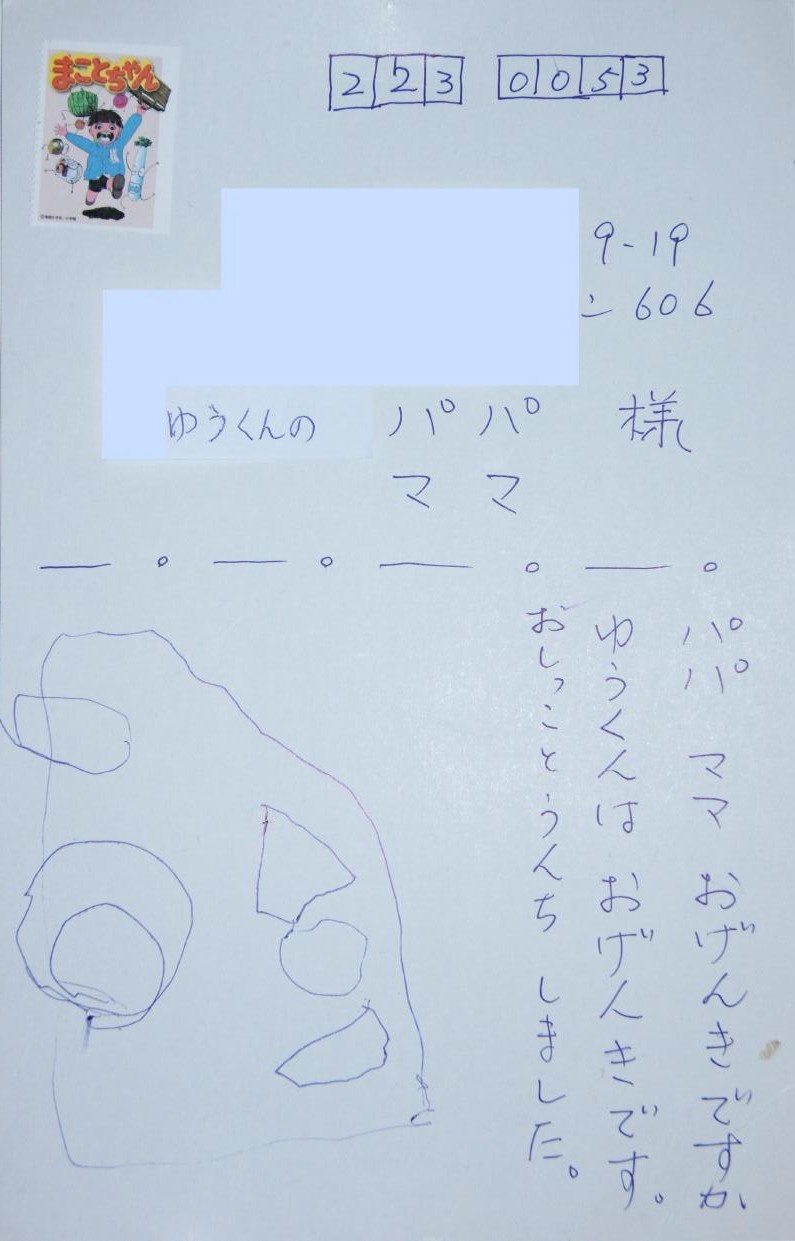 まことちゃん
223 0053
9-19
ン606
ゆうくんの パパ 様
ママ
パパ ママ おげんきですか
ゆうくんは おげんきです。
おしっことうんち しました。